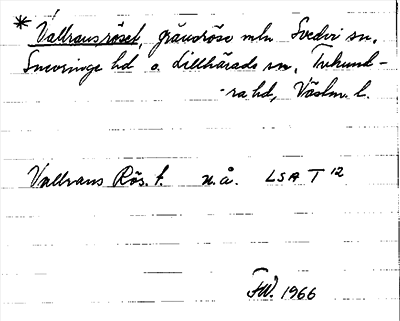 * Vallransröset, gränsröse mln Svedvi sn,
Snevringe hd o. Lillhärads sn, Tuhund-
ra hd, Västm. l.
Vallrans Rös. t. n.å. LSA T 12
FW. 1966